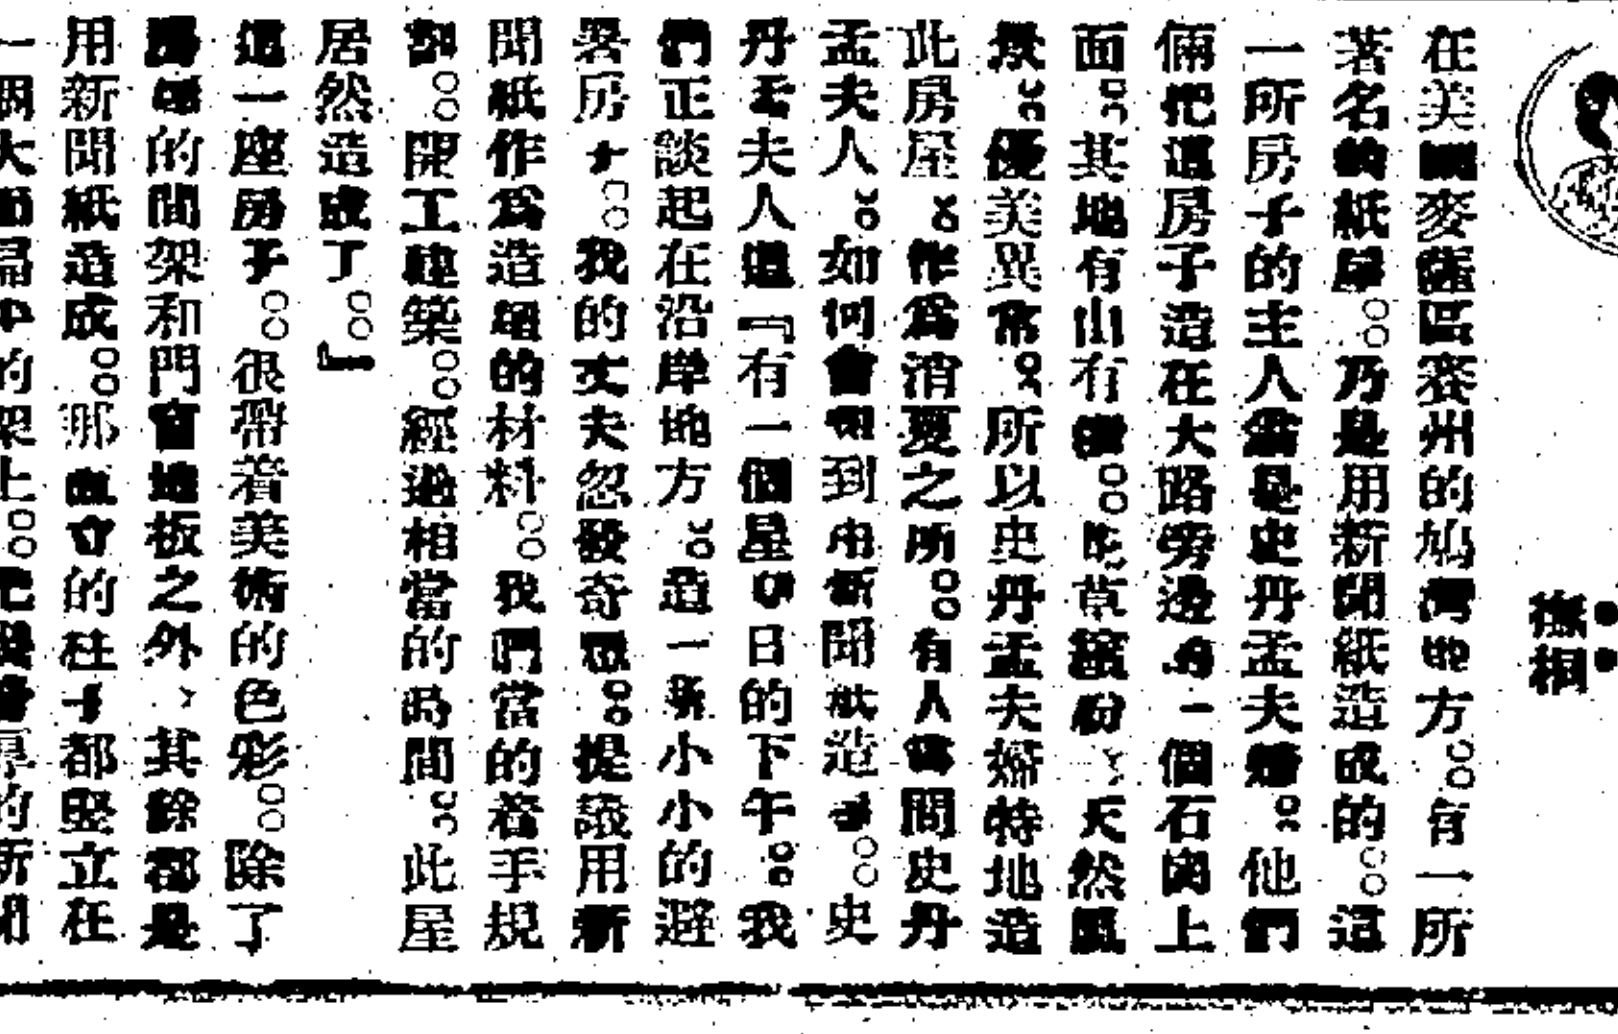 撫桐
在美國麥薩區賽州的鳩灣地方。有一所
著名的紙屋。乃是用新聞紙造成的。這
一所房子的主人翁是史丹孟夫婦。他們
倆把這房子造在大路旁邊的一個石崗上
面。其地有山有樹。芳草繽紛、天然風
景。優美異常。所以史丹孟夫婦特地造
此房屋。作爲消夏之所。有人嘗問史丹
孟夫人。如何會想到用新聞紙造屋。史
丹孟夫人道『有一個星期日的下午。我
們正談起在沿岸地方。造一所小小的避
暑房子。我的丈夫忽發奇想。提議用新
聞紙作爲造屋的材料。我們當的着手規
劃。開工建築。經過相當的時間。此屋
居然造成了。』
這一座房子。很帶着美術的色彩。除了
房屋的間架和門窗地板之外、其餘都是
用新聞紙造成。那直立的柱子都竪立在